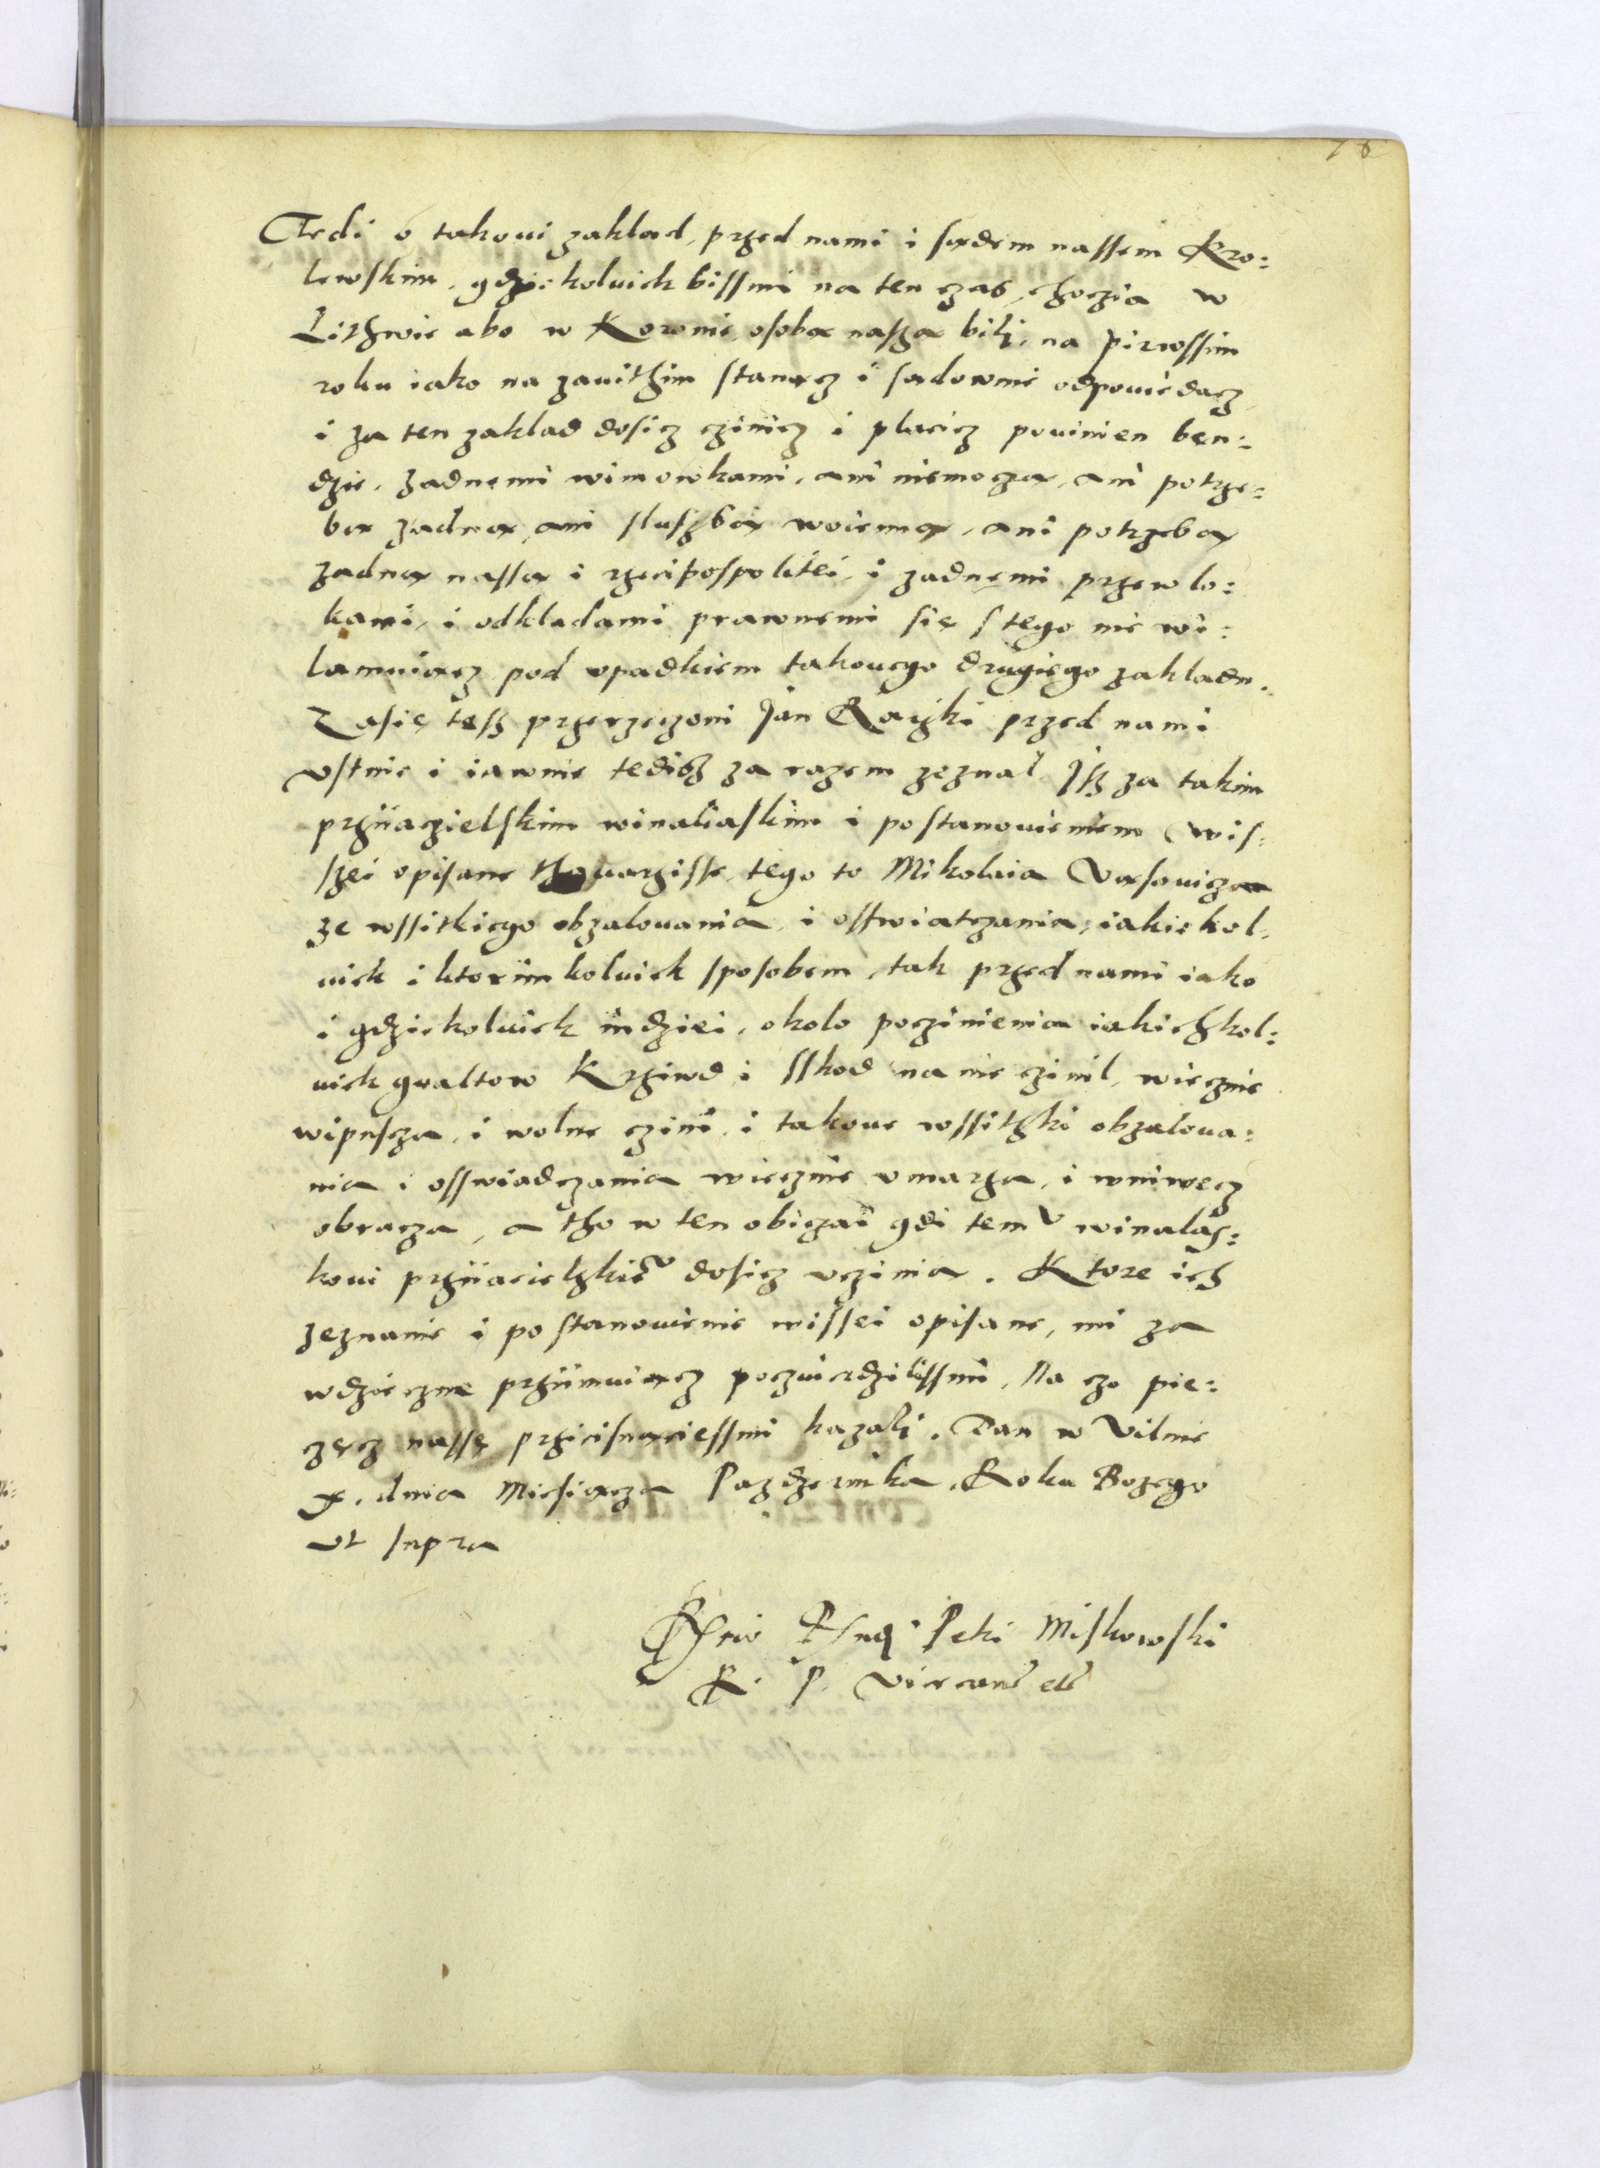 Tedi o takoui zaklad, przed nami i sądem nassem Kro:
lewskim, gdziekoluiek bissmi na ten czas, choczia w
Lithwie abo w Koronie osobą naszą bili, na pirwssim
roku iako na zauithim stanącz i sądownie odpouiedacz
i za ten zaklad dosicz czinicz i placicz pouinien ben:
dzie, zadnemi wimowkami, ani niemoczą, ani potrze:
bą zadną, ani sluszbą woienną, ani potrzebą
zadną nassą i rzecipospolitei, i zadnemi przewlo:
kami, i odkladami prawnemi się s tego nie wi:
lamuiącz pod vpadkiem takouego drugiego zakladu.
Zasię tesz przerzeczoni Jan Rayski przed nami
vstnie i iawnie tedisz za razem zeznal Jsz za takim
prziiaczielskim winaliaskim i postanouieniem wis:
szei opisane thouarzisse tego to Mikolaia Vąsouicza
ze wssitkiego obzalouania i osswiatczania, iakiekol:
uiek i ktorimkoluiek sposobem, tak przed nami iako
i gdziekoluiek indziei, okolo poczinienia iakichkol:
uiek gualtow Krziwd i sskod na nie czinil, wiecznie
wipuscza, i wolne czini, i takoue wssitzki obzaloua:
nia i osswiadczania wiecznie vmarza, i wniwecz
obracza, a tho w ten obiczai gdi temu winalas:
koui prziiacielskiemu dosicz vczinia. Ktore ich
zeznanie i postanouienie wissei opisane, mi za
wdzięczne prziimuiącz poczuierdzilissmi, Na czo pie:
częcz nassę przicisnąciessmi kazali. Dan w Vilnie
x. dnia Miesiącza Pazdzernika, Roku Bozego
vt supra
Petri Miskowski
R. P. Vicecancel